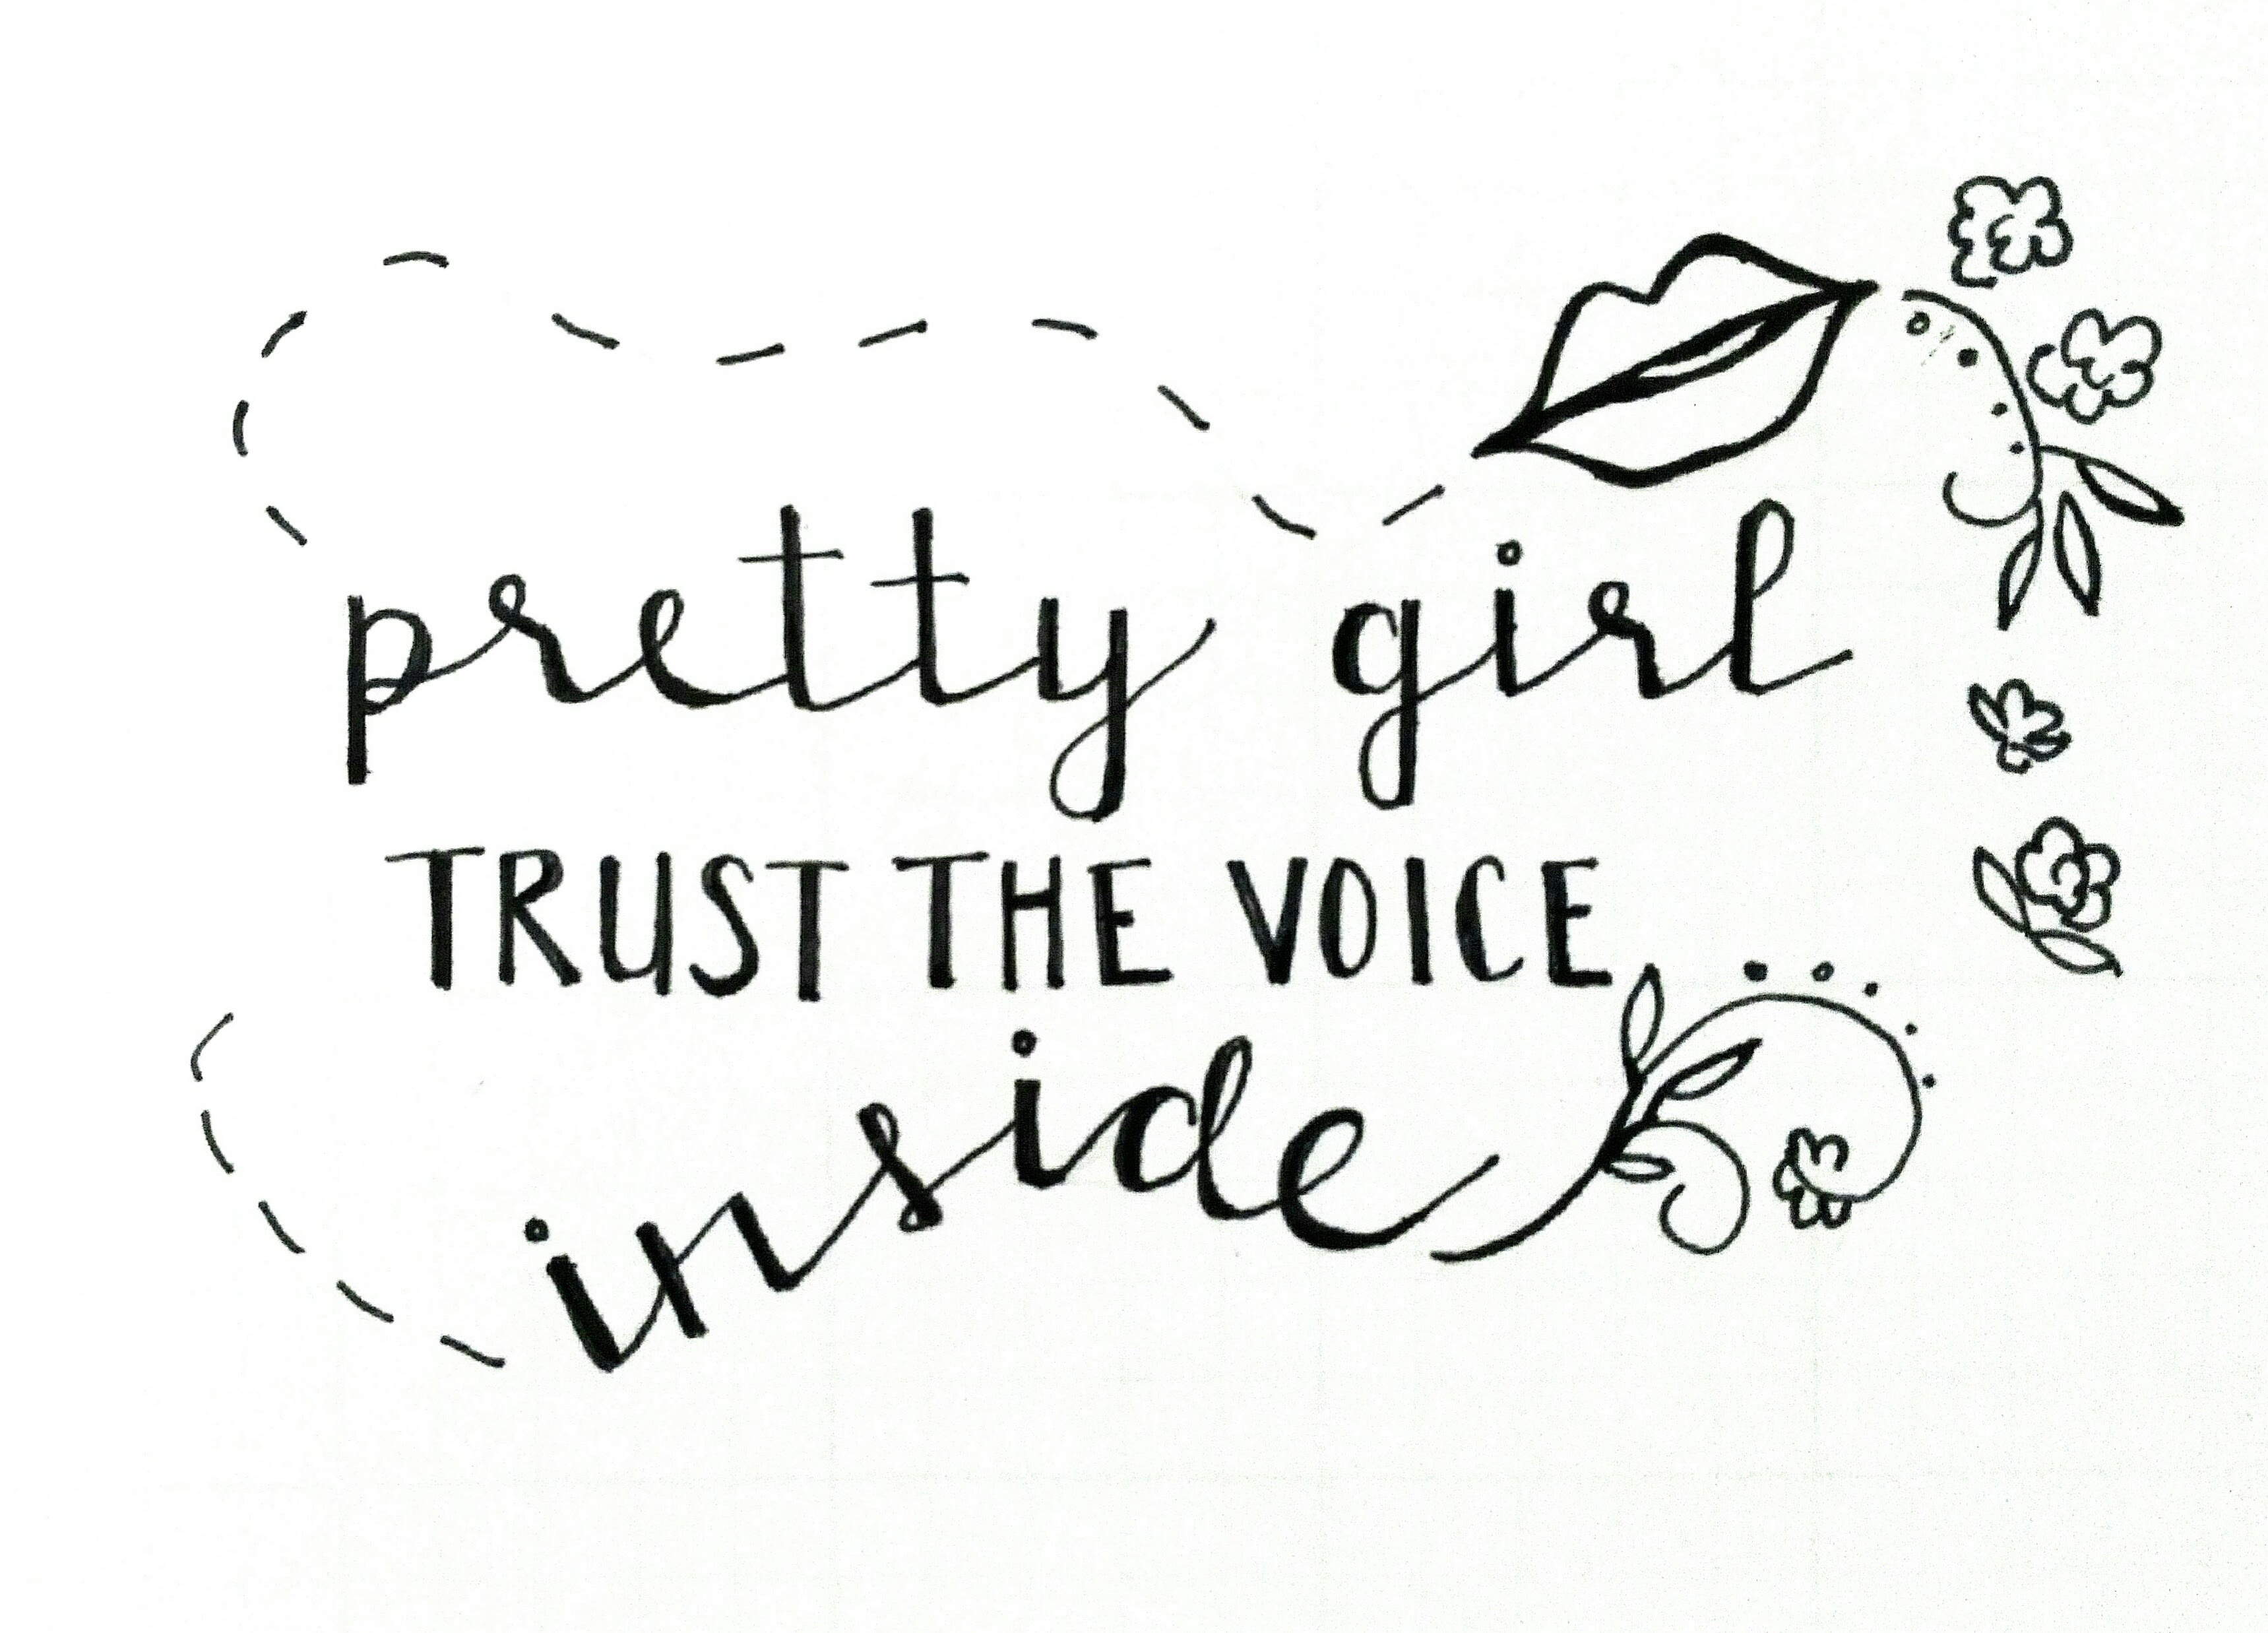 pretty girl
TRUST THE VOICE
inside